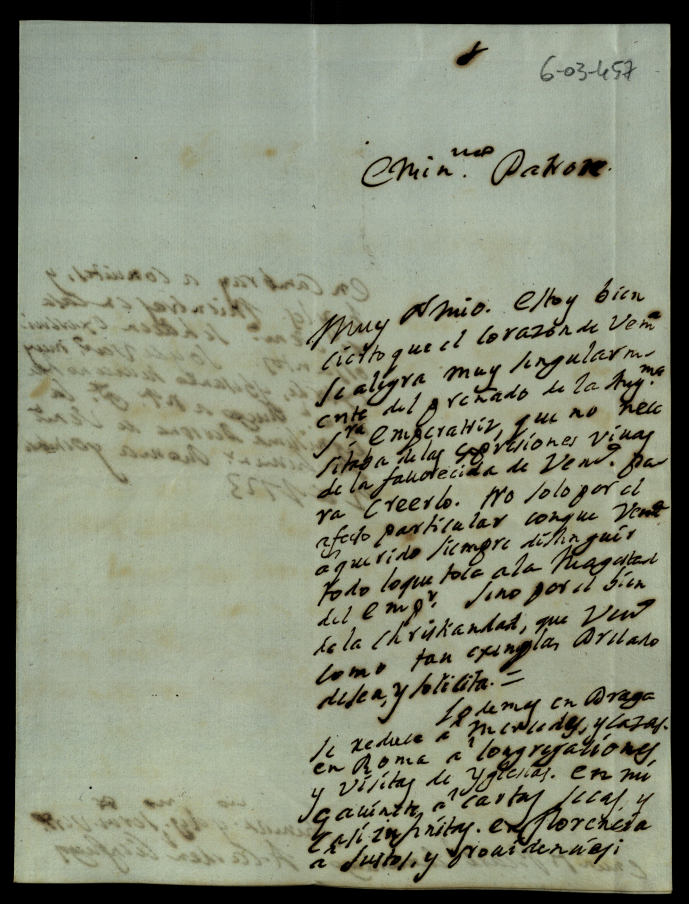 6-03-457
Emin.mo Patrone.
Muy Sr mio. Estoy bien
cierto que el corazon de Vem.a
se aligra muy singularm
ente del preñado de la Aug.ma
S.ra Emperatriz, que no nece
sitaba de las expresiones vivas
de la favorecida de Vem.a pa
ra creerlo. No solo por el
afecto particular conque Vem.a
a querido siempre distinguir
todo loque toca a la Magestad
del Emp.r sino por el bien
de la Christiandad, que Vem.a
como tan exemplar Prelado
desea, y solicita. =
Lo demas en Praga
se reduce a mercedes, y cazas.
en Roma a Congregaciones
y Visitas de Yglesias. en mi
Gavinete a cartas secas, y
casi infinitas. en florencia
a sustos, y providencias;